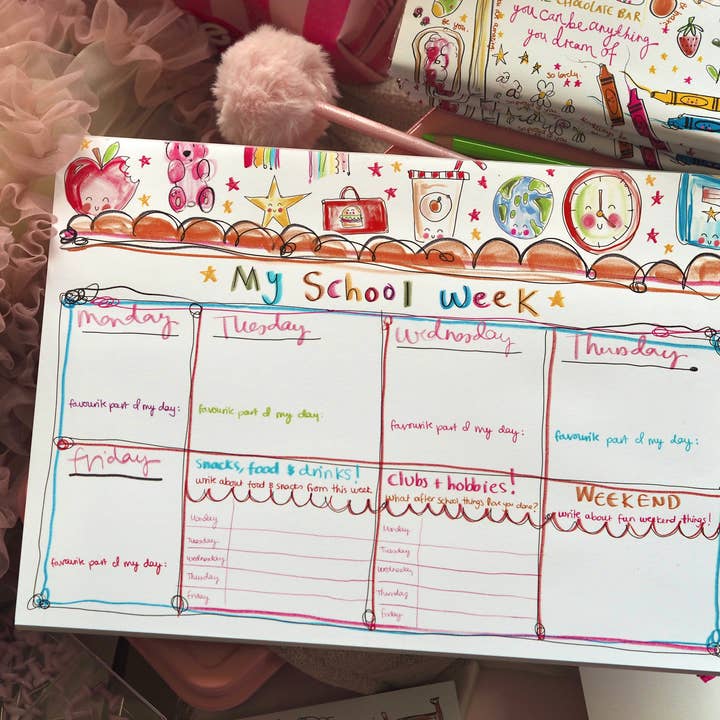 THE CHOCOLATE BAR
you can be anything
you dream of
Be you.
so lovely
My School Week
Monday
Tuesday
Wednesday
Thursday
favourite part of my day:
favourite part of my day:
favourite part of my day:
favourite part of my day:
Friday
favourite part of my day:
snacks, food & drinks!
write about food & snacks from this week
Monday
Tuesday
Wednesday
Thursday
Friday
clubs + hobbies!
What after school things have you done?
Monday
Tuesday
Wednesday
Thursday
Friday
WEEKEND
write about fun weekend things!